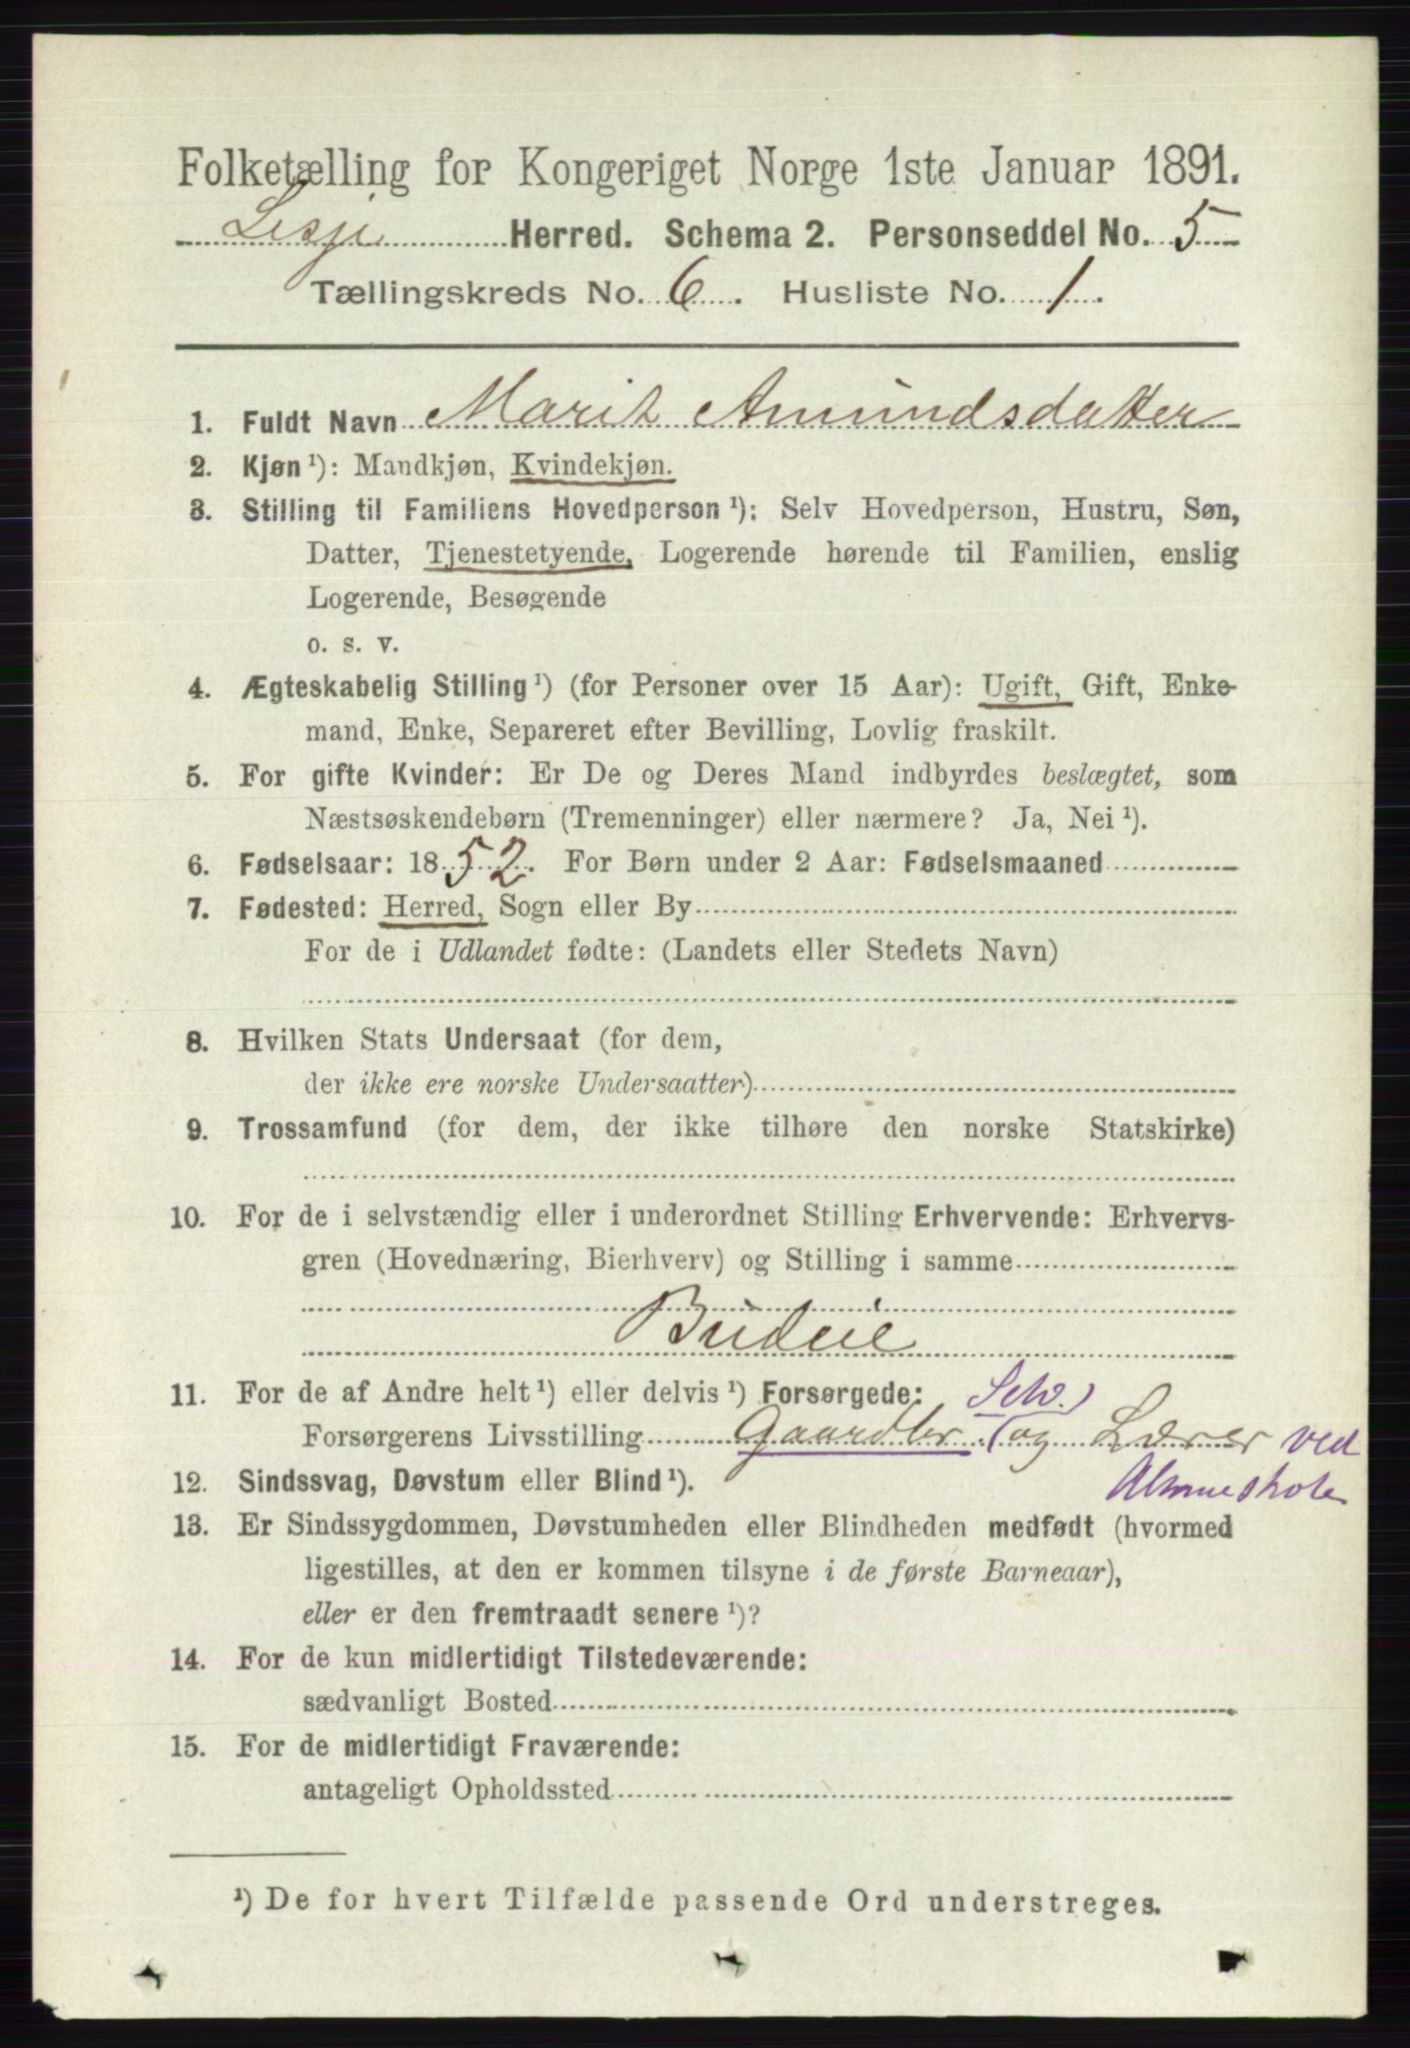 Folketælling for Kongeriget Norge 1ste Januar 1891.
Lesje Herred. Schema 2. Personseddel No. 5
Tællingskreds No. 6. Husliste No. 1.
1. Fuldt Navn Marit Amundsdatter
2. Kjøn ¹): Mandkjøn, Kvindekjøn.
3. Stilling til Familiens Hovedperson ¹): Selv Hovedperson, Hustru, Søn,
Datter, Tjenestetyende, Logerende hørende til Familien, enslig
Logerende, Besøgende
o. s. v.
4. Ægteskabelig Stilling ¹) (for Personer over 15 Aar): Ugift, Gift, Enke-
mand, Enke, Separeret efter Bevilling, Lovlig fraskilt.
5. For gifte Kvinder: Er De og Deres Mand indbyrdes beslægtet, som
Næstsøskendebørn (Tremenninger) eller nærmere? Ja, Nei ¹).
6. Fødselsaar: 1852. For Børn under 2 Aar: Fødselsmaaned
7. Fødested: Herred, Sogn eller By
For de i Udlandet fødte: (Landets eller Stedets Navn)
8. Hvilken Stats Undersaat (for dem,
der ikke ere norske Undersaatter)
9. Trossamfund (for dem, der ikke tilhøre den norske Statskirke)
10. For de i selvstændig eller i underordnet Stilling Erhvervende: Erhvervs-
gren (Hovednæring, Bierhverv) og Stilling i samme
Budeie
11. For de af Andre helt ¹) eller delvis ¹) Forsørgede: Selv.)
Forsørgerens Livsstilling Gaardbr. (og Lærer ved
Almueskole
12. Sindssvag, Døvstum eller Blind ¹).
13. Er Sindssygdommen, Døvstumheden eller Blindheden medfødt (hvormed
ligestilles, at den er kommen tilsyne i de første Barneaar),
eller er den fremtraadt senere ¹)?
14. For de kun midlertidigt Tilstedeværende:
sædvanligt Bosted
15. For de midlertidigt Fraværende:
antageligt Opholdssted
¹) De for hvert Tilfælde passende Ord understreges.